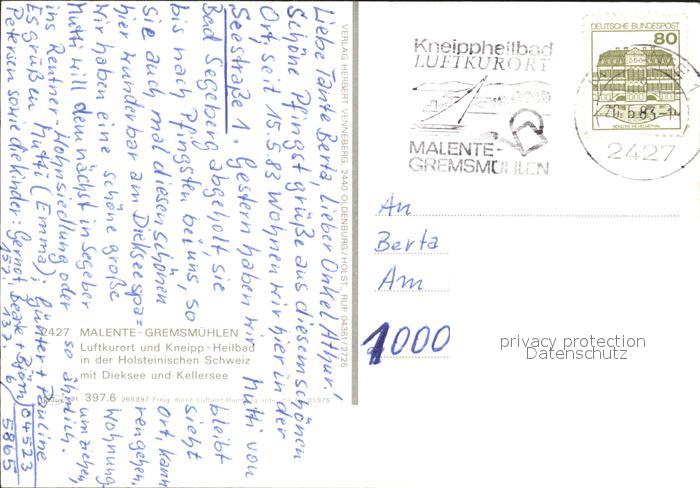 Liebe Tante Berta, lieber Onkel Athur!
Schöne Pfingstgrüße aus diesem schönen
Ort, seit 15.5.83 wohnen wir hier in der
Seestraße 1. Gestern haben wir Mutti von
Bad Segeberg abgeholt, sie bleibt
bis nach Pfingsten bei uns, so sieht
Sie auch mal diesen schönen Ort, kann
hier wunderbar am Dieksee spa=
rengehen.
Wir haben eine schöne große Wohnung
Mutti will demnächst in Segeber umziehen,
ins Rentner-Wohnsiedlung oder so ähnlich.
Es grüßen Mutti (Emma); Günter + Pauline
Petersen sowie die Kinder: Gernot, Beate + Björn
04523
5865
VERLAG HERBERT VENNEBERG, 2440 OLDENBURG/HOLST., RUF 04361/2726
2427 MALENTE-GREMSMÜHLEN
Luftkurort und Kneipp-Heilbad
in der Holsteinischen Schweiz
mit Dieksee und Kellersee
397.6
Kneippheilbad
LUFTKURORT
MALENTE-
GREMSMÜHLEN
DEUTSCHE BUNDESPOST
80
20.5.83
2427
An
Berta
Am
1000
privacy protection
Datenschutz